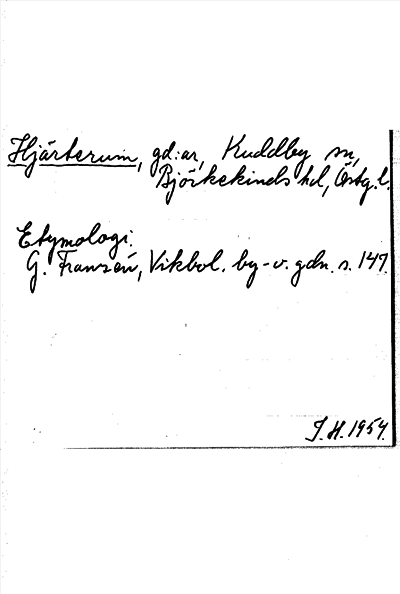 Hjärterum, gd:ar, Kuddby sn,
Björkekinds hd, Östg. l.
Etymologi.
G. Franzén, Vikbol. by- o. gdn. s. 147.
J. H. 1954.